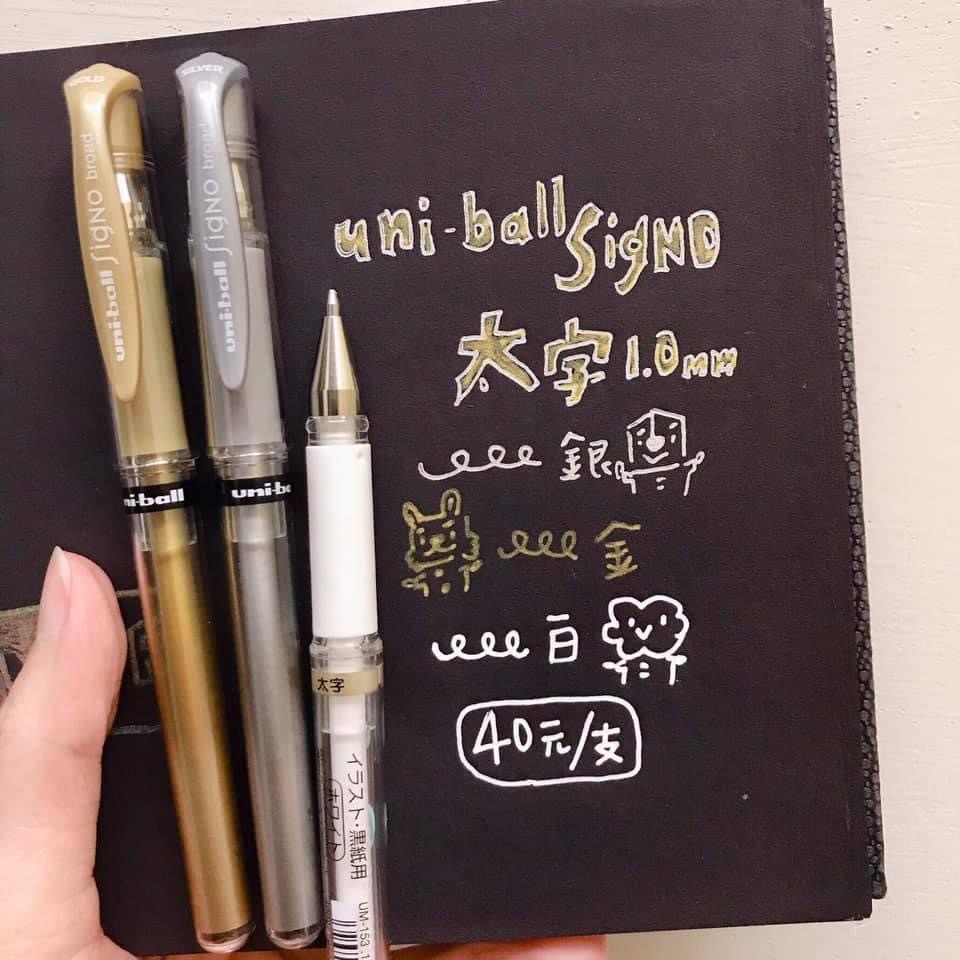 GOLD
uni-ball SigNO broad
SILVER
uni-ball SigNO broad
uni-ball SigNO
太字 1.0mm
銀
金
白
40元/支
ni-ball
uni-ba
太字
イラスト・黒紙用
ホワイト
UM-153